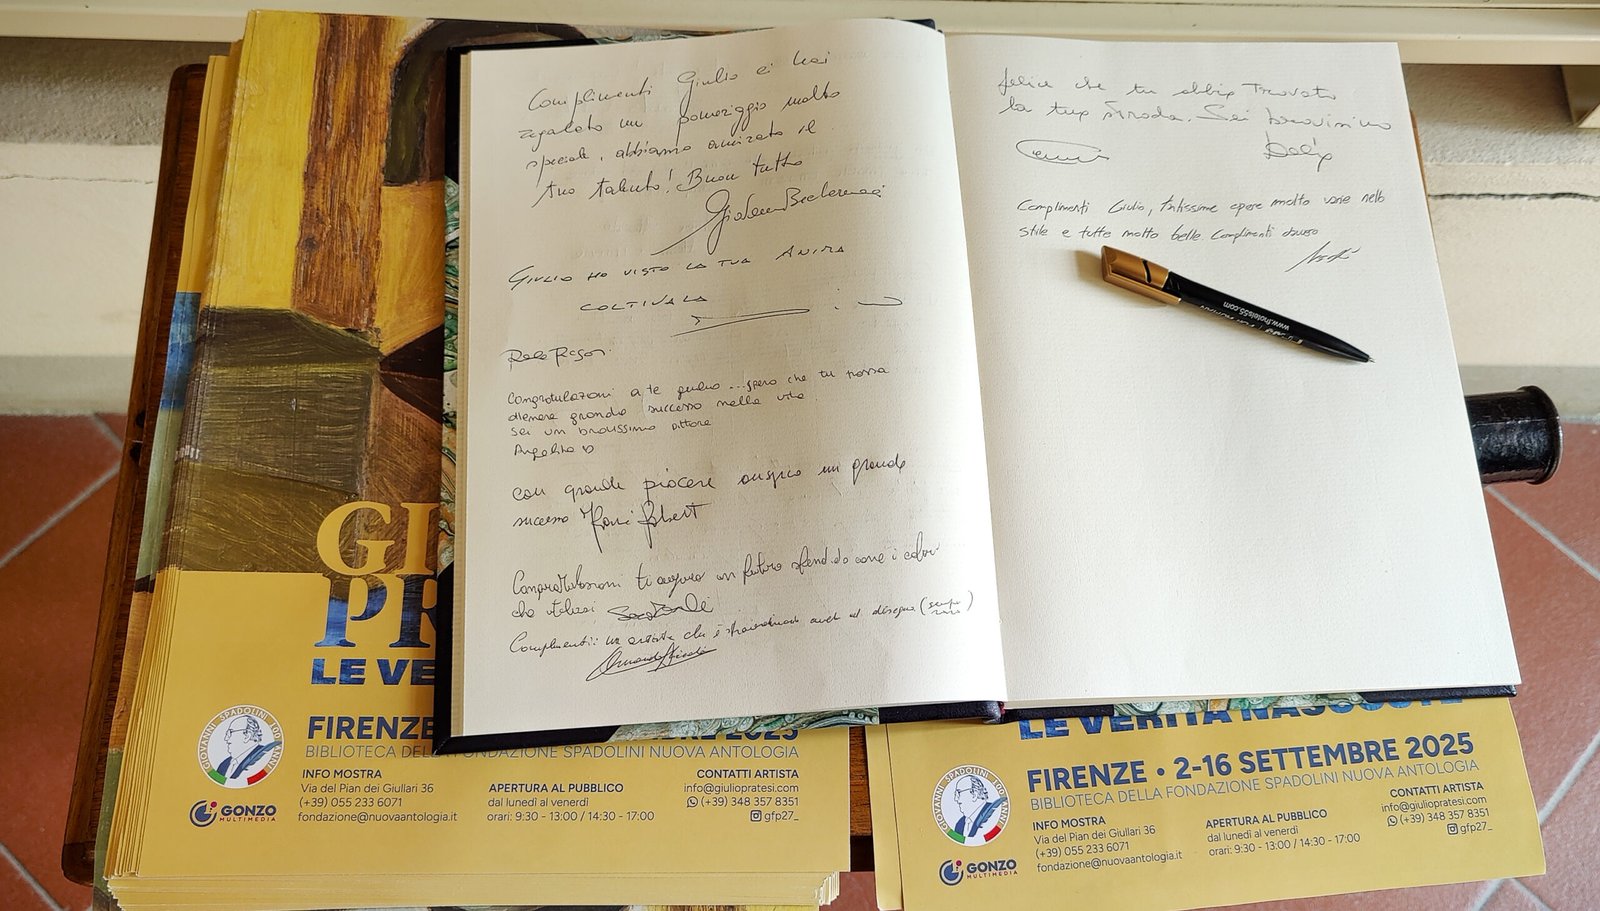 Complimenti Giulio ci hai
regalato un pomeriggio molto
speciale, abbiamo ammirato il
tuo talento! Buon tutto
GIULIO HO VISTO LA TUA ANIMA
COLTIVALA
Congratulazioni a te giulio ... spero che tu possa
grande successo nella vita
sei un bravissimo pittore
con grande piacere auspico un grande
successo
Congratulazioni ti auguro un futuro splendido come i colori
che utilizzi
Complimenti: un artista che è straordinario anche al disegno
felice che tu abbia Trovato
la tua strada. Sei bravissimo
Complimenti Giulio, tantissime opere molto varie nello
stile e tutte molto belle. Complimenti davvero
www.fhotels55.com
GI
PR
LE VE
FIRENZE
2025
BIBLIOTECA DELLA FONDAZIONE SPADOLINI NUOVA ANTOLOGIA
GIOVANNI SPADOLINI 100 ANNI
GONZO
MULTIMEDIA
INFO MOSTRA
Via del Pian dei Giullari 36
(+39) 055 233 6071
fondazione@nuovaantologia.it
APERTURA AL PUBBLICO
dal lunedì al venerdì
orari: 9:30 - 13:00 / 14:30 - 17:00
CONTATTI ARTISTA
info@giuliopratesi.com
(+39) 348 357 8351
gfp27_
LE VERITÀ NASCOSTE
FIRENZE • 2-16 SETTEMBRE 2025
BIBLIOTECA DELLA FONDAZIONE SPADOLINI NUOVA ANTOLOGIA
GIOVANNI SPADOLINI 100 ANNI
GONZO
MULTIMEDIA
INFO MOSTRA
Via del Pian dei Giullari 36
(+39) 055 233 6071
fondazione@nuovaantologia.it
APERTURA AL PUBBLICO
dal lunedì al venerdì
orari: 9:30 - 13:00 / 14:30 - 17:00
CONTATTI ARTISTA
info@giuliopratesi.com
(+39) 348 357 8351
gfp27_